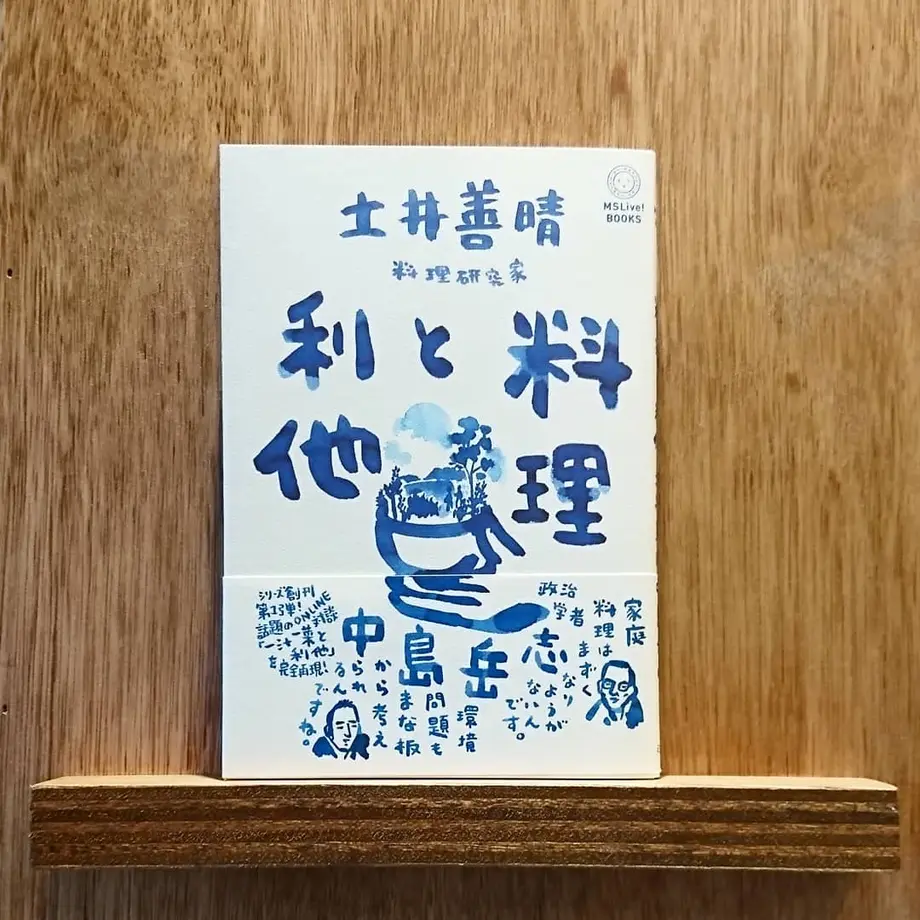 MSLive!
BOOKS
土井善晴
料理研究家
料理
と
利他
政治
学者
中島岳志
家庭
料理は
まずく
なり
ようが
ないん
です。
環境
問題も
まな板
から考え
られ
るん
ですね。
シリーズ創刊
第1弾!
話題のONLINE対談
「一汁一菜と
利他」
を完全再現!